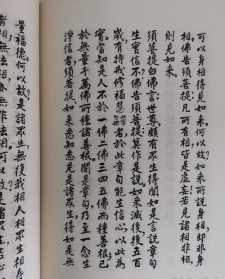 可以身相得見如来何以故如来所說身相即非身
相佛告須菩提凡所有相皆是虛妄若見諸相非相
則見如来
須菩提白佛言世尊頗有眾生得聞如是言說章句
生實信不佛告須菩提莫作是說如来滅後後五百
歲有持戒修福慧者於此章句能生信心以此為
實當知是人不於一佛二佛三四五佛而種善根已
於無量千萬佛所種諸善根聞是章句乃至一念生
淨信者須菩提如来悉知悉見是諸眾生得如是無
量福德何以故是諸眾生無復我相人相眾生相壽
者相無法相亦無非法相何以故